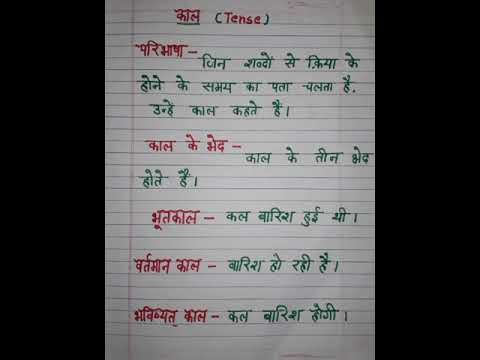 काल (Tense)
परिभाषा - जिन शब्दों से क्रिया के
होने के समय का पता चलता है.
उन्हे काल कहते है।
काल के भेद -
काल के तीन भेद
होते है।
भूतकाल - कल बारिश हुई थी।
वर्तमान काल - बारिश हो रही है।
भविष्यत् काल - कल बारिश होगी।